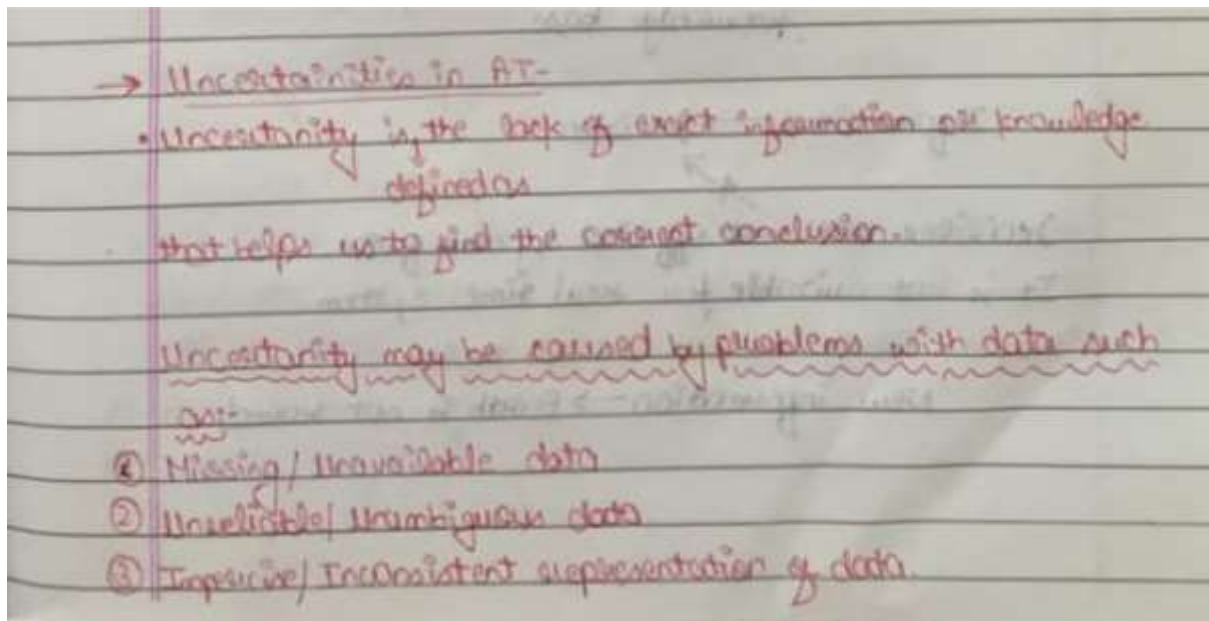 → Uncertainities in AI-
• Uncertanity is the lack of exact information or knowledge
defined as
that helps us to find the correct conclusion.
Uncertanity may be caused by problems with data such
as:-
① Missing / Unavailable data
② Unreliable / Unambiguous data
③ Imprecise / Inconsistent representation of data.